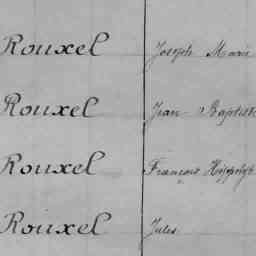 Rouxel Joseph Marie
Rouxel Jean Baptiste
Rouxel François Hippolyte
Rouxel Jules